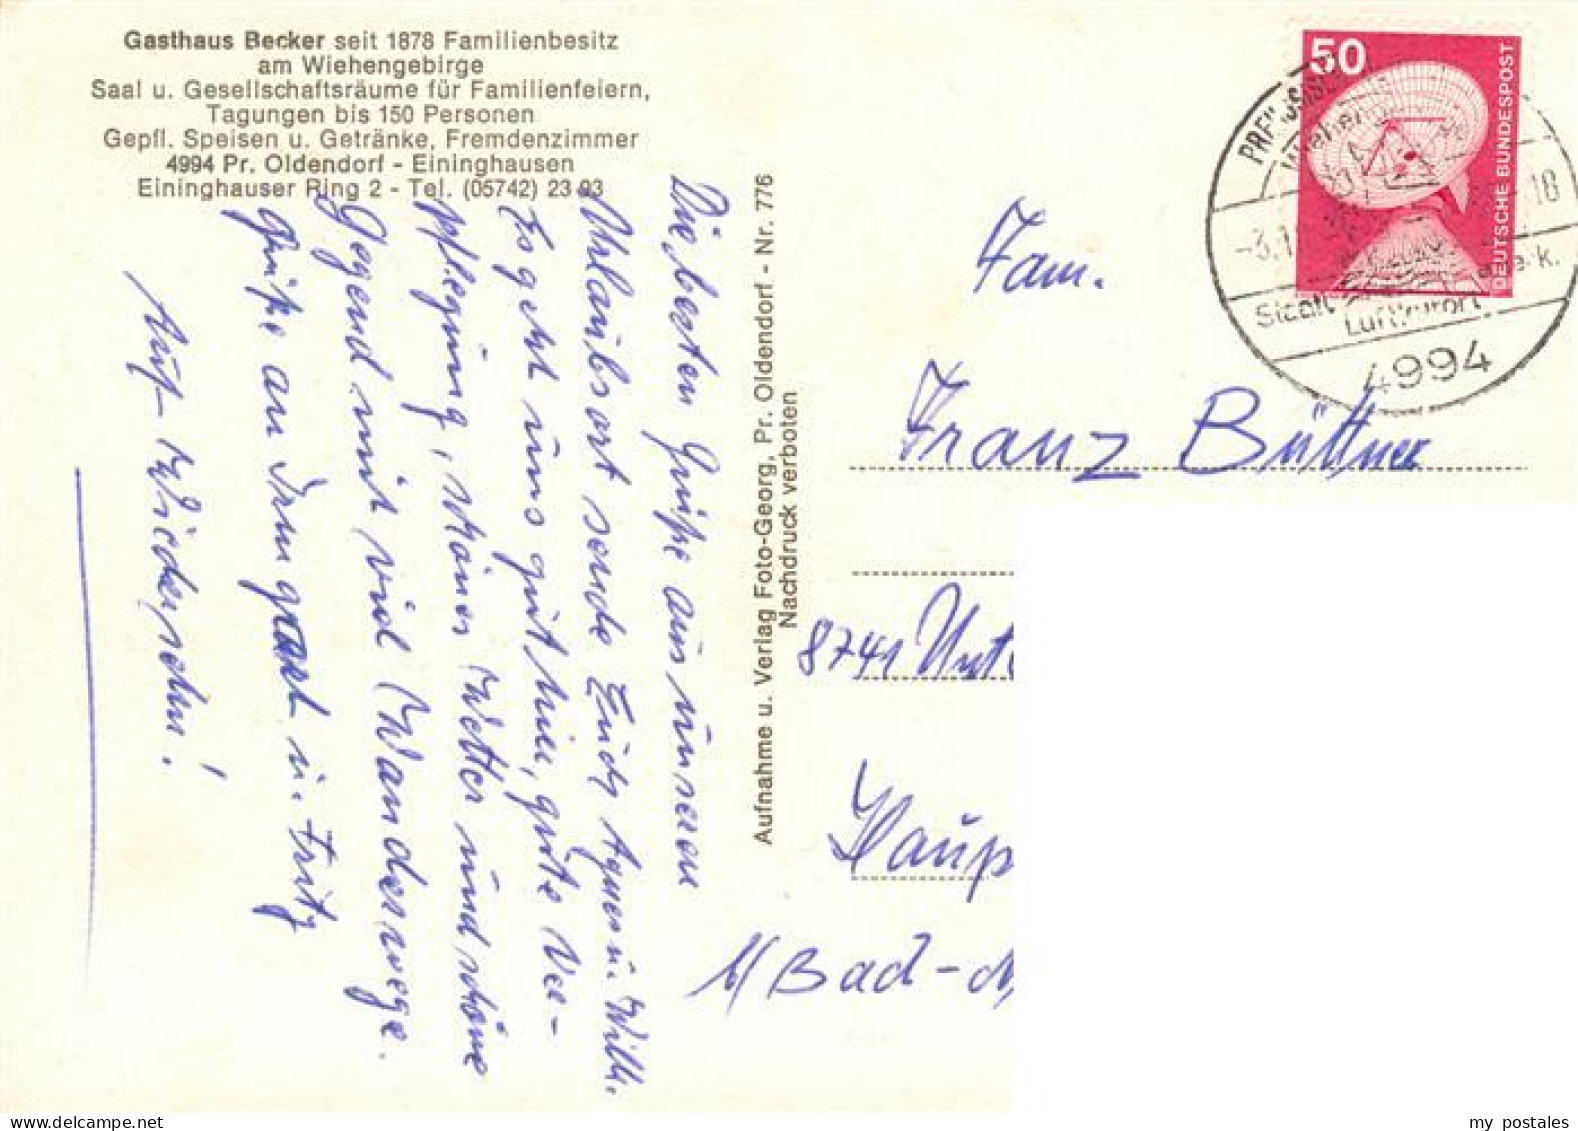 Gasthaus Becker seit 1878 Familienbesitz
am Wiehengebirge
Saal u. Gesellschaftsräume für Familienfeiern,
Tagungen bis 150 Personen
Gepfl. Speisen u. Getränke, Fremdenzimmer
4994 Pr. Oldendorf - Eininghausen
Eininghauser Ring 2 - Tel. (05742) 23 93
Die besten Grüße aus unseren
Uhrlaubsort sende Euch Agnes u. Willi.
Es geht uns gut hier, gute Ver-
pflegung, schönes Wetter und schöne
Gegend mit viel Wanderwege.
Grüße an Irmgard u. Fritz
Auf Wiedersehn!
Aufnahme u. Verlag Foto-Georg, Pr. Oldendorf - Nr. 776
Nachdruck verboten
50
DEUTSCHE BUNDESPOST
-3.1
18
Luftkurort
4994
Fam.
Franz Büttner
8741 Unt
Haup
b/ Bad-N
my postales